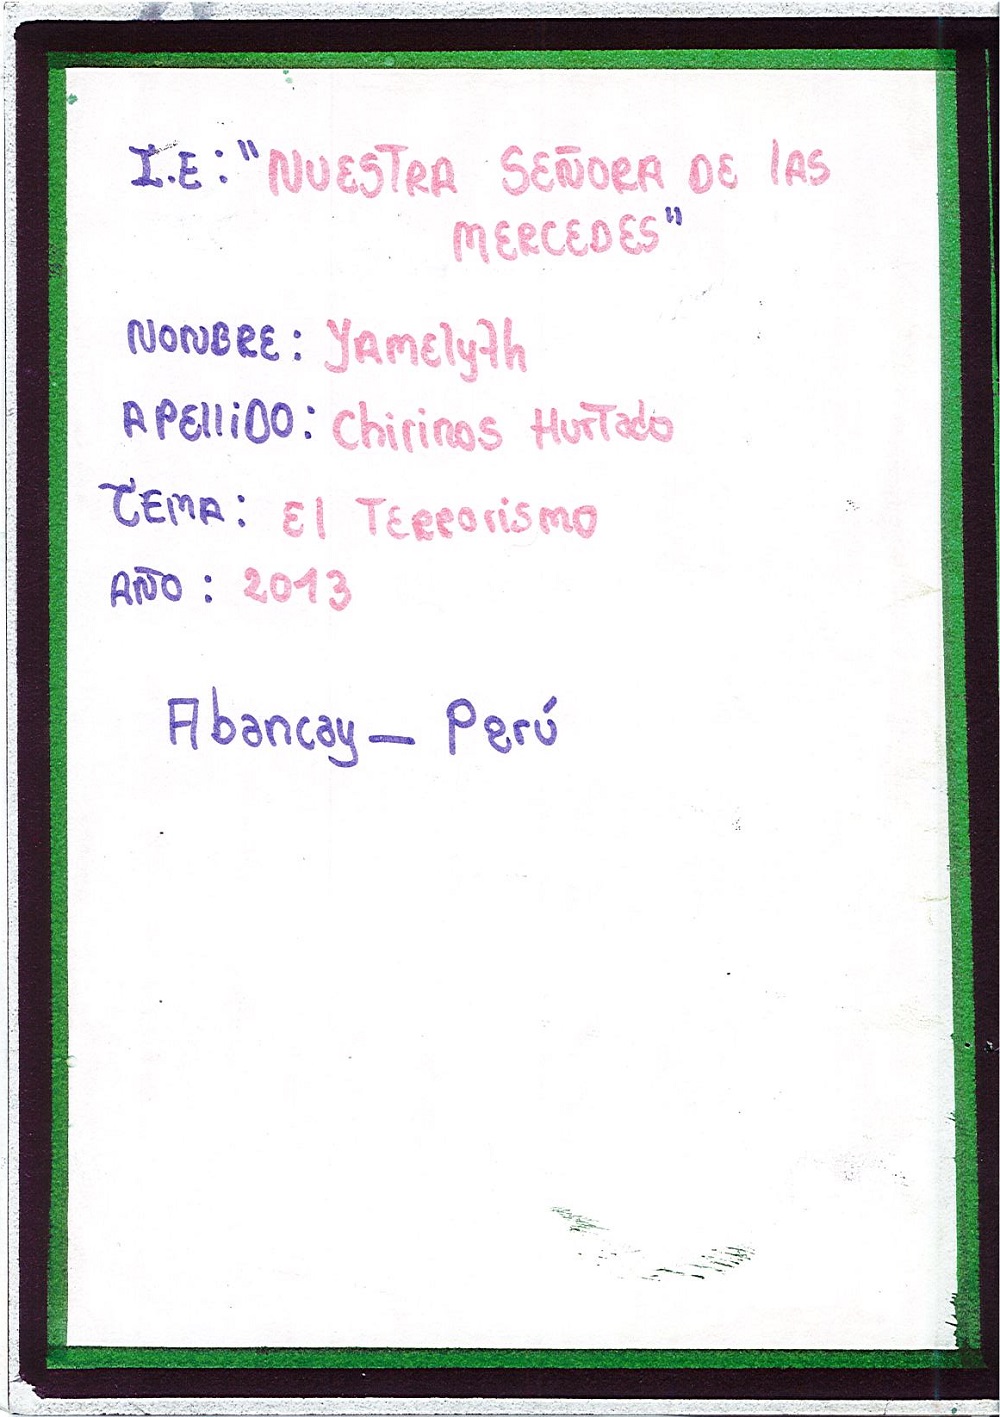 I.E: "NUESTRA SEÑORA DE lAS
MERCEDES"
NONBRE: Yamelyth
APElliDO: Chirinos Hurtado
TEMA: El Terrorismo
AÑO: 2013
Abancay – Perú